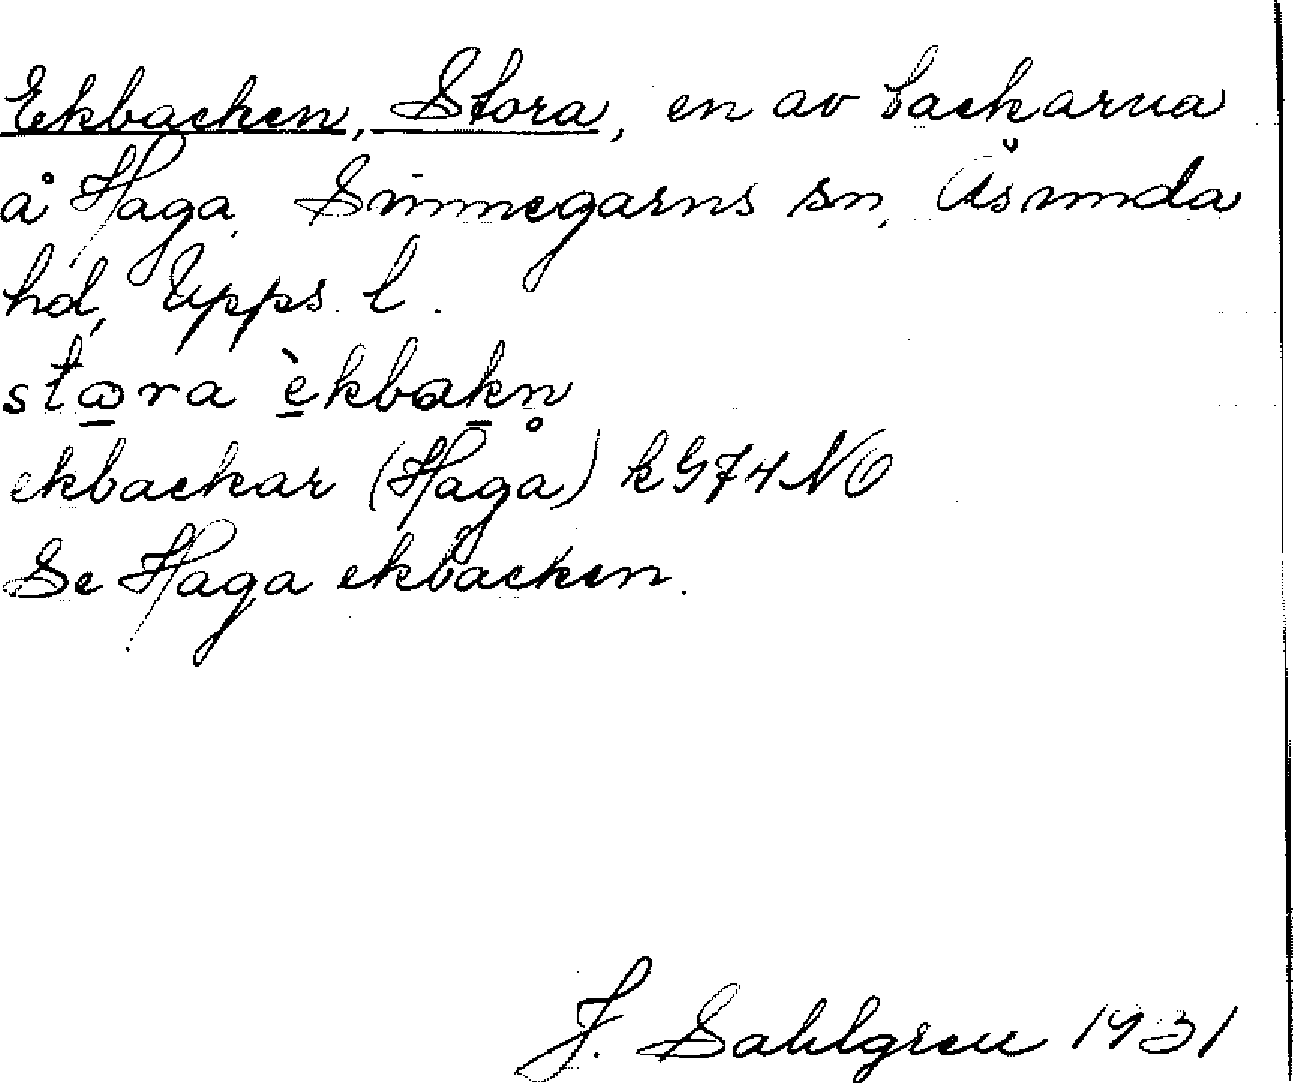 Ekbacken, Stora, en av backarna
å Haga, Simmegarns sn, Åsunda
hd, Upps. l.
stɷ̱ra è̱kbak̠n̥
ekbackar (Haga) k G74 NO
Se Haga ekbacken.
J. Sahlgren 1931